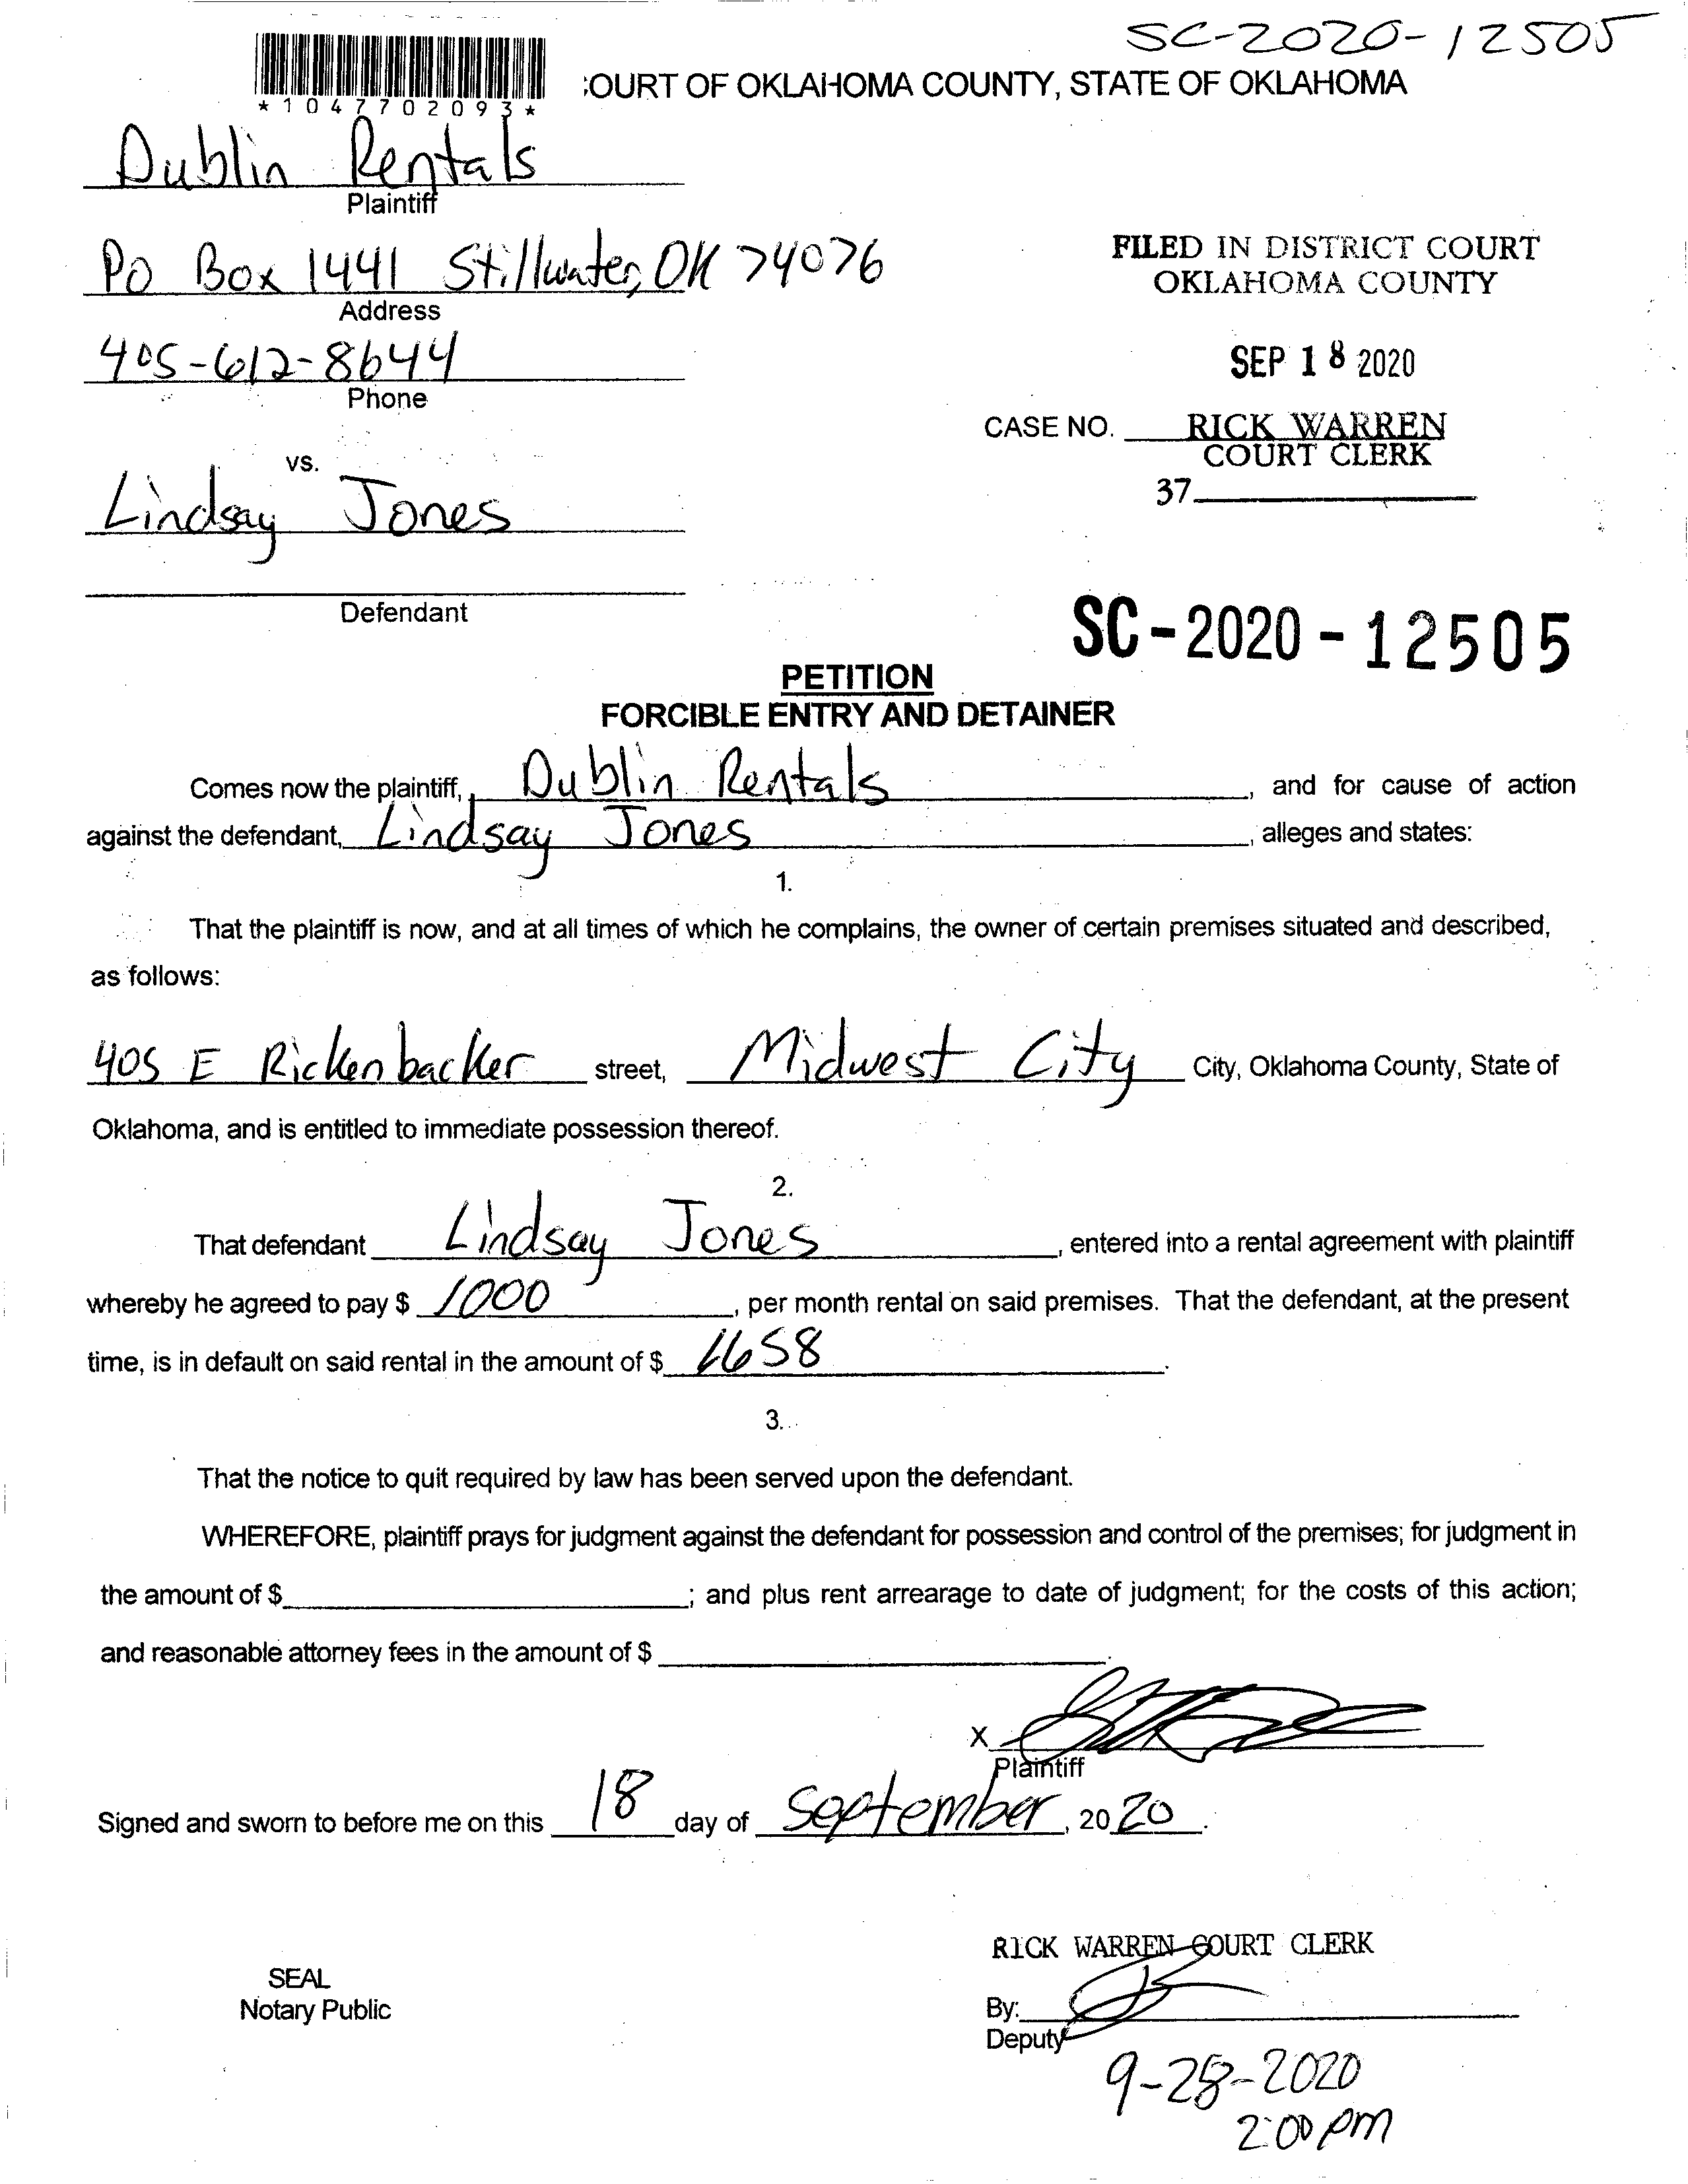 SC-2020-12505
*1047702093*
:OURT OF OKLAHOMA COUNTY, STATE OF OKLAHOMA
Dublin Rentals
Plaintiff
PO Box 1441 Stillwater, OK 74076
Address
FILED IN DISTRICT COURT
OKLAHOMA COUNTY
405-612-8644
Phone
SEP 18 2020
CASE NO. RICK WARREN
COURT CLERK
37
vs.
Lindsay Jones
Defendant
SC-2020-12505
PETITION
FORCIBLE ENTRY AND DETAINER
Comes now the plaintiff, Dublin Rentals, and for cause of action
against the defendant, Lindsay Jones, alleges and states:
1.
That the plaintiff is now, and at all times of which he complains, the owner of certain premises situated and described,
as follows:
405 E Rickenbacker street, Midwest City City, Oklahoma County, State of
Oklahoma, and is entitled to immediate possession thereof.
2.
That defendant Lindsay Jones, entered into a rental agreement with plaintiff
whereby he agreed to pay $ 1000, per month rental on said premises. That the defendant, at the present
time, is in default on said rental in the amount of $ 1658.
3.
That the notice to quit required by law has been served upon the defendant.
WHEREFORE, plaintiff prays for judgment against the defendant for possession and control of the premises; for judgment in
the amount of $ ; and plus rent arrearage to date of judgment; for the costs of this action;
and reasonable attorney fees in the amount of $ .
X
Plaintiff
Signed and sworn to before me on this 18 day of September, 2020.
RICK WARREN COURT CLERK
SEAL
Notary Public
By:
Deputy
9-28-2020
2:00 pm